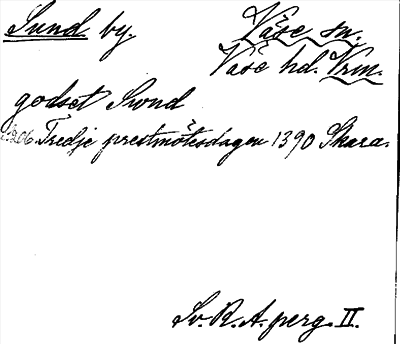 Sund by. Väse sn.
Väse hd. Vrm.
godset Swnd
2/206 Tredje prestmötesdagen 1390 Skara.
Sv. R. A. perg. II.